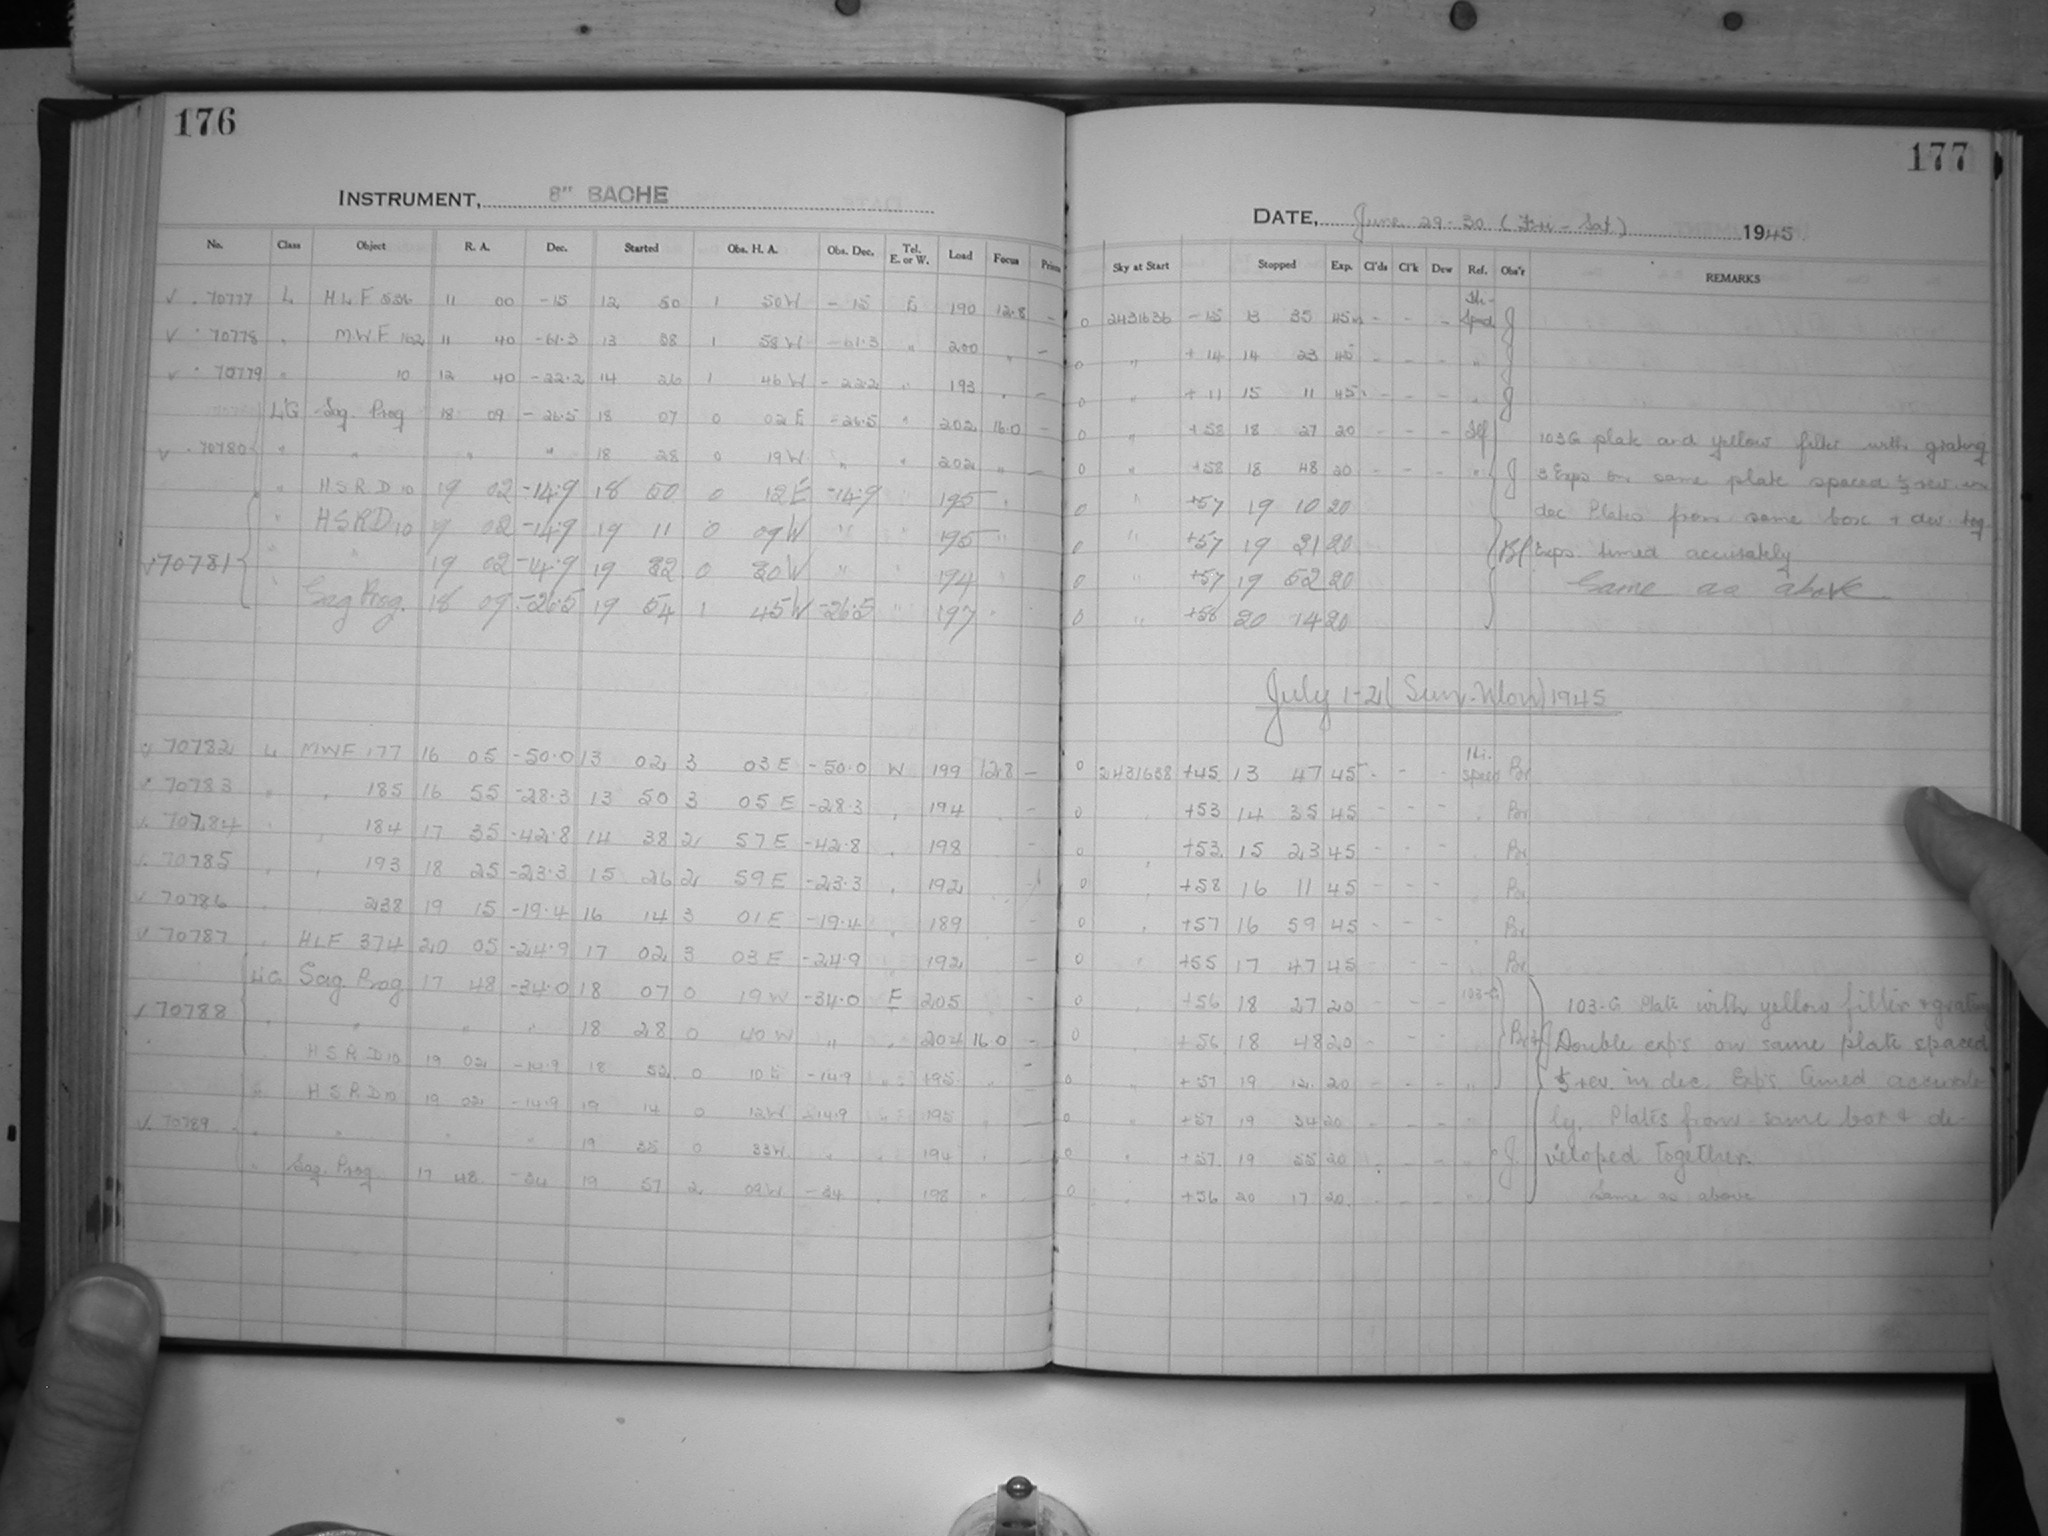 176
INSTRUMENT, 8" BACHE
No. Class Object R. A. Dec. Started Obs. H. A. Obs. Dec. Tel. E. or W. Load Focus
√ 70777 L HLF 11 00 -15 12 50 1 50 W -15 E 190 12.8 -
√ 70778 " MWF 11 40 -61.3 13 38 1 58 W -61.3 " 200 " -
√ 70779 " 10 12 40 -22.2 14 26 1 46 W -22.2 " 193 " -
Sag. Prog 18 09 -26.5 18 07 0 02 E -26.5 " 202 16.0 -
√ 70780 " " " " 18 28 0 19 W " " 202 " -
" HSRD10 19 02 -14.9 18 50 0 12 E -14.9 " 195 "
" HSRD10 19 02 -14.9 19 11 0 09 W " " 195 "
√ 70781 " " 19 02 -14.9 19 32 0 30 W " " 194 "
" Sag Prog. 18 09 -26.5 19 54 1 45 W -26.5 " 197 "
√ 70782 L MWF 177 16 05 -50.0 13 02 3 03 E -50.0 W 199 12.8 -
√ 70783 " " 185 16 55 -28.3 13 50 3 05 E -28.3 " 194 " -
√ 70784 " " 184 17 35 -42.8 14 38 2 57 E -42.8 " 198 -
√ 70785 " " 193 18 25 -23.3 15 26 2 59 E -23.3 " 192 -
√ 70786 " " 238 19 15 -19.4 16 14 3 01 E -19.4 " 189 -
√ 70787 " HLF 374 20 05 -24.9 17 02 3 03 E -24.9 " 192 -
Sag Prog 17 48 -34.0 18 07 0 19 W -34.0 E 205 -
√ 70788 " " " " 18 28 0 40 W " " 204 16.0 -
HSRD10 19 02 -14.9 18 52 0 10 E -14.9 " 195 -
" HSRD10 19 02 -14.9 19 14 0 12 W -14.9 " 195 " -
√ 70789 " " " " 19 35 0 33 W " " 194 " -
" Sag. Prog. 17 48 -34 19 57 2 09 W -34 " 198 " -
177
DATE, June 29-30 (Fri - Sat) 1945
Sky at Start Stopped Exp. Cl'ds Cl'k Dew Ref. Obs'r REMARKS
0 2431636 -15 13 35 45 - - - J
0 " +14 14 23 45 - - - " J
0 " +11 15 11 45 - - - " J
0 " +58 18 27 20 - - - 103G plate and yellow filter with grating
0 " +58 18 48 20 - - - " J 3 Exps on same plate spaced
0 " +57 19 10 20 dec Plates from same box + dev tog.
0 " +57 19 31 20 Exps. timed accurately
0 " +57 19 52 20 Same as above
0 " +58 20 14 20
July 1-2 (Sun-Mon) 1945
0 2431638 +45 13 47 45 - - - Br
0 " +53 14 35 45 - - - " Br
0 " +53 15 23 45 - - - " Br
0 " +58 16 11 45 - - - " Br
0 " +57 16 59 45 - - - " Br
0 " +55 17 47 45 - - - " Br
0 " +56 18 27 20 - - - 103-G 103-G Plate with yellow filter + grating
0 " +56 18 48 20 - - - Double exp's on same plate spaced
0 " +57 19 12 20 - - - " rev. in dec. Exp's timed accurate-
0 " +57 19 34 20 - - - ly. Plates from same box & de-
0 " +57 19 55 20 - - - J veloped together.
0 " +56 20 17 20 - - - " Same as above